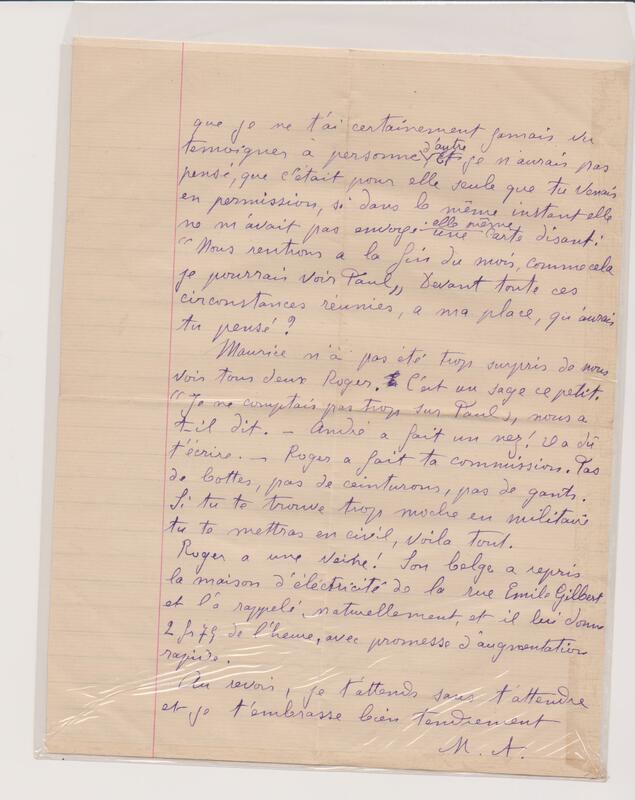 que je ne t'ai certainement jamais vu
temoigner à personne d'autre et je n'aurais pas
pensé, que c'était pour elle seule que tu venais
en permission, si dans le même instant elle
ne m'avait pas envoyé elle même une carte disant :
"Nous rentrons a la fin du mois, comme cela
je pourrais voir Paul„ Devant toute ces
circonstances réunies, a ma place, qu'aurais
tu pensé ?
Maurice n'a pas été trop surpris de nous
voir tous deux Roger. C'est un sage ce petit.
"Je ne comptais pas trop sur Paul„ nous a
t-il dit. — André a fait un nez ! Il a dû
t'écrire. — Roger a fait ta commission. Pas
de bottes, pas de ceinturons, pas de gants.
Si tu te trouve trop moche en militaire
tu te mettras en civil, voila tout.
Roger a une veine ! Son belge a repris
la maison d'électricité de la rue Emile Gilbert
et l'a rappelé, naturellement, et il lui donne
2 fr 75 de l'heure, avec promesse d'augmentation
rapide.
Au revoir, je t'attends sans t'attendre
et je t'embrasse bien tendrement
M. A.